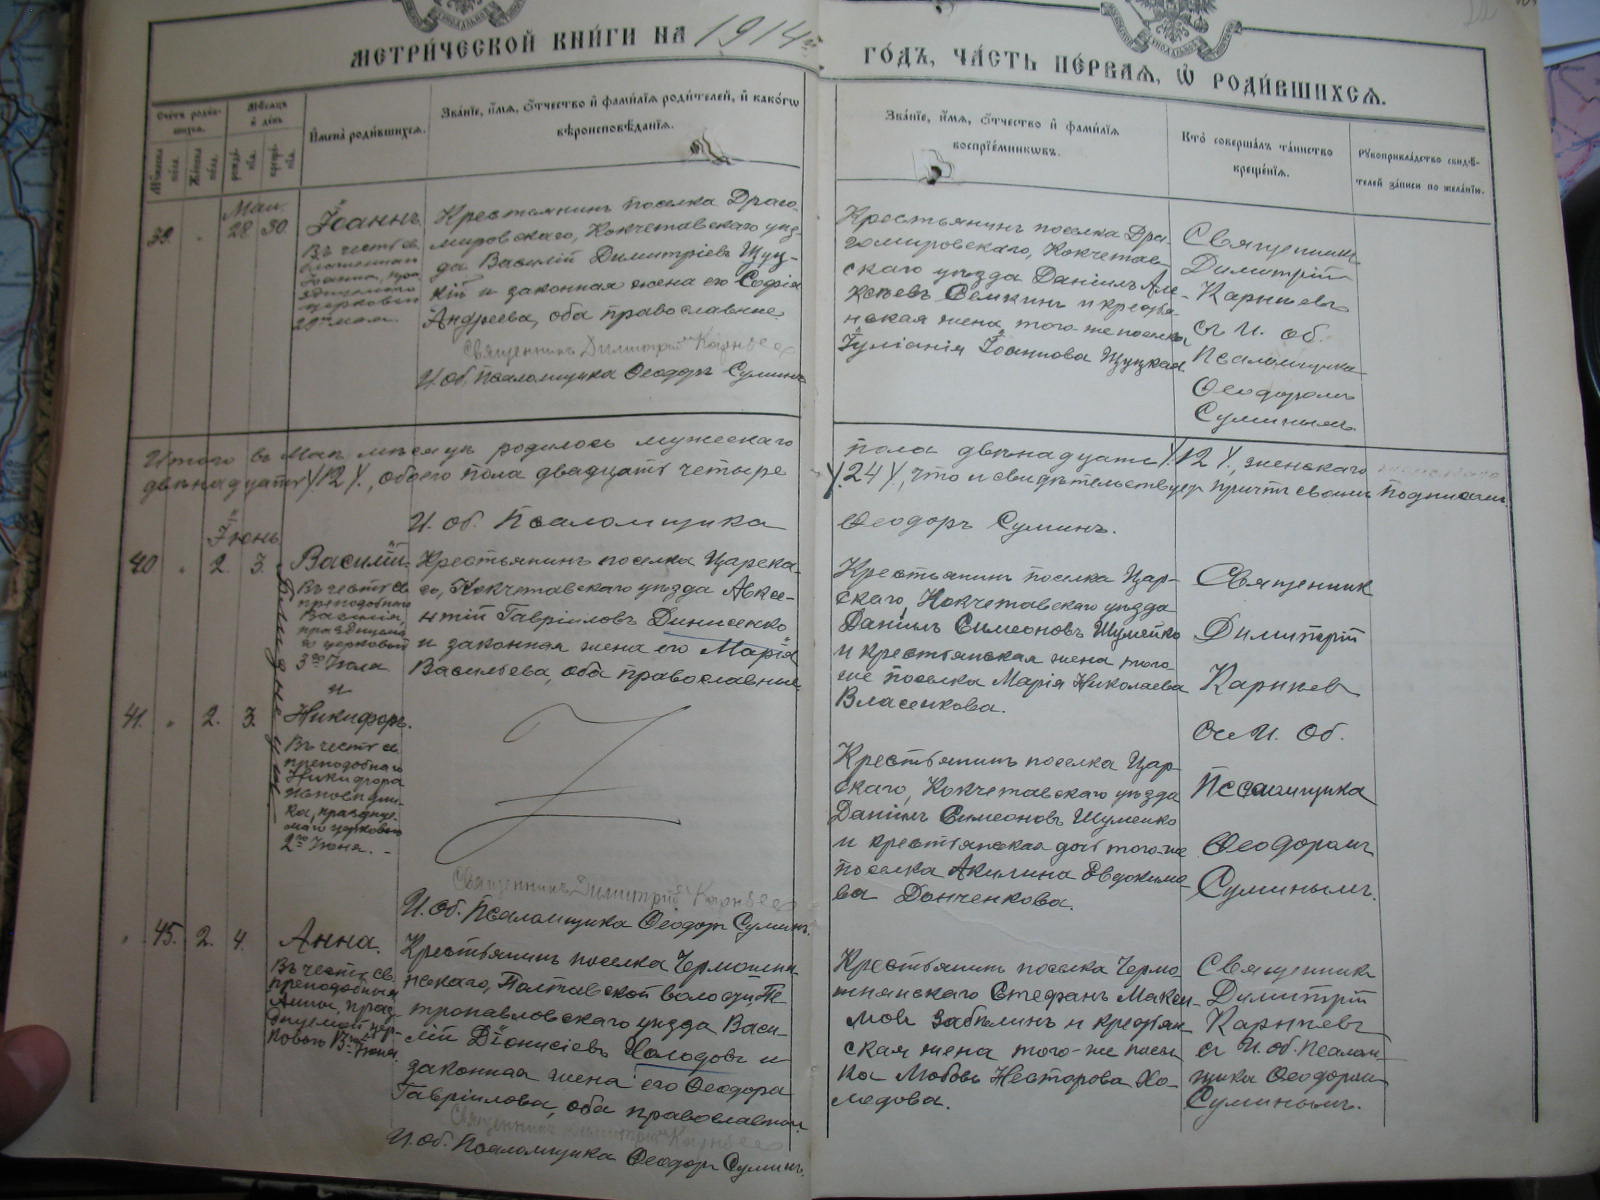 МЕТРИ́ЧЕСКОЙ КНИ́ГИ НА 1914й ГО́ДЪ, ЧА́СТЬ ПЕ́РВАѦ, Ѽ РОДИ́ВШИХСѦ.
Сче́тъ роди́вшихсѧ.
Мꙋ́жеска по́ла.
Же́нска по́ла.
Мѣ́сѧцъ и҆ де́нь
рожде́нїѧ.
креще́нїѧ.
И҆мена̀ роди́вшихсѧ.
Зва́нїе, и҆́мѧ, ѻ҆́тчество и҆ фами́лїѧ роди́телей, и҆ како́гѡ
вѣроисповѣ́данїѧ.
Зва́нїе, и҆́мѧ, ѻ҆́тчество и҆ фами́лїѧ
воспрїе́мникѡвъ.
Кто̀ соверша́лъ та́инство
креще́нїѧ.
Рꙋкоприкла́дство свидѣ́-
телей за́писи по жела́нїю.
Маи.
39. " 28. 30.
Іоаннъ.
Въ честь св.
блаженнаго
Іоанна, праз
днуемаго
церковью
29го мая.
Крестьянинъ поселка Драго-
мировскаго, Кокчетавскаго уѣз-
да Василій Димитріевъ Щуц-
кій и законная жена его Софія
Андреева, оба православные.
Священникъ Димитрій Карнѣев
И. об. псаломщика Ѳеодоръ Суминъ
Крестьянинъ поселка Дра-
гомировскаго, Кокчетав-
скаго уѣзда Даніилъ Але-
ксѣевъ Семкинъ и крестья-
нская жена того-же поселка
Іуліанія Іоаннова Щуцкая
Священникъ
Димитрій
Карнѣевъ
съ И. об.
Псаломщика
Ѳеодоромъ
Суминымъ.
Итого въ Маѣ мѣсяцѣ родилось мужескаго пола двѣнадцать /12/, женскаго
двѣнадцать /12/, обоего пола двадцать четыре /24/, что и свидѣтельствуетъ причтъ своимъ подписомъ.
И. об. Псаломщика Ѳеодоръ Суминъ.
Іюнь
40 " 2. 3.
Василій
Въ честь св.
преподобнаго
Василія,
празднуема
го церковью
3го Іюля
и
Близнецы.
Крестьянинъ поселка Царска-
го, Кокчетавскаго уѣзда Авксе-
нтій Гавріиловъ Динисенко
и законная жена его Марія
Васильева, оба православные
Крестьянинъ поселка Цар-
скаго, Кокчетавскаго уѣзда
Даніилъ Симеоновъ Шумейко
и крестьянская жена того-
же поселка Марія Николаева
Власенкова.
Священникъ
Димитрій
Карнѣев
Съ И. Об.
Псаломщика
Ѳеодоромъ
Суминымъ.
41. " 2. 3.
Никифоръ.
Въ честь св.
преподобнаго
Никифора
исповѣдни-
ка, празднуе-
маго церковью
2го Іюня.
Священникъ Димитрій Карнѣев
И. Об. Псаломщика Ѳеодоръ Суминъ.
Крестьянинъ поселка Цар-
скаго, Кокчетавскаго уѣзда
Даніилъ Симеоновъ Шумейко
и крестьянская дочь того-же
поселка Акилина Евдокимо-
ва Донченкова.
" 45. 2. 4.
Анна.
Въ честь св.
преподобныя
Анны, праз-
днуемой цер-
ковью 13го Іюня.
Крестьянинъ поселка Чермошнян-
нскаго, Полтавской волости, Пе-
тропавловскаго уѣзда Васи-
лій Діонисіевъ Холодовъ и
законная жена его Ѳеодора
Гавріилова, оба православные.
Священникъ Димитрій Карнѣев
И. Об. Псаломщика Ѳеодоръ Суминъ.
Крестьянинъ поселка Чермо-
шнянскаго Стефанъ Макси-
мовъ Забѣлинъ и крестьян-
ская жена того-же посел-
ка Любовь Несторова Хо-
лодова.
Священникъ
Димитрій
Карнѣевъ
съ И. об. Псалом-
щика Ѳеодоромъ
Суминымъ.